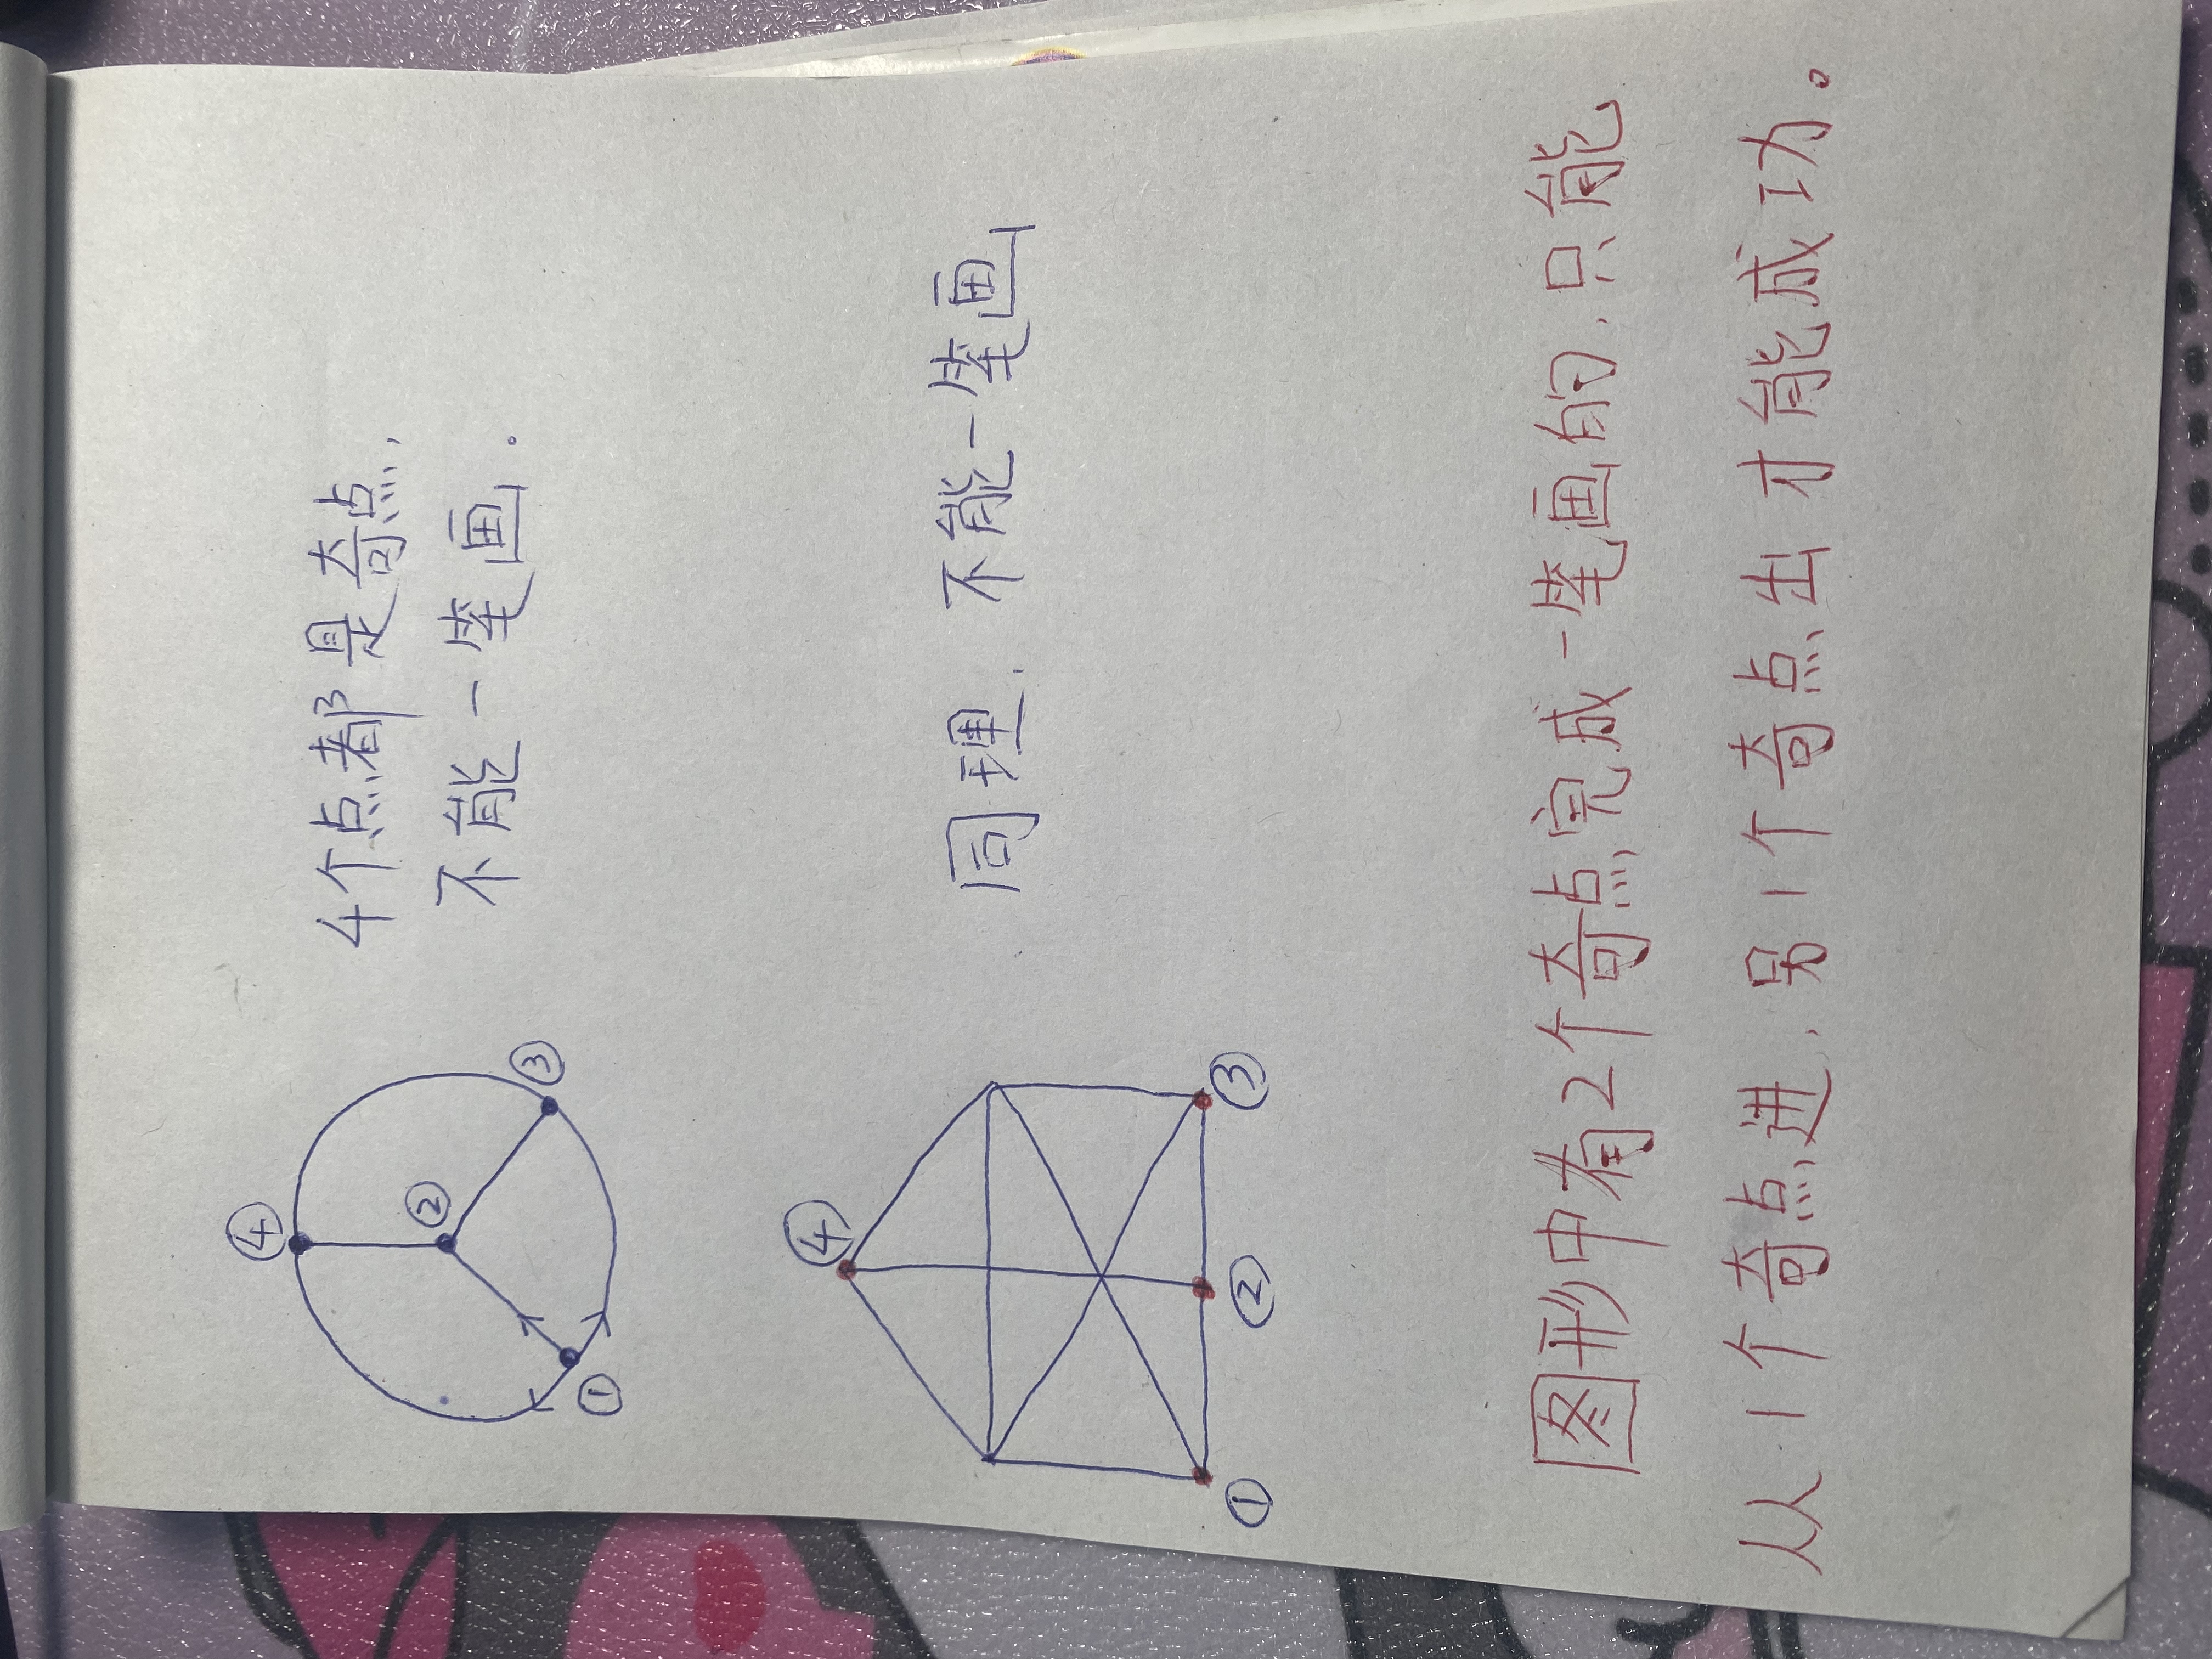 ④
②
③
①
4个点都是奇点,
不能一笔画.。
④
①
②
③
同理. 不能一笔画
图形中有2个奇点完成一笔画的.只能
从1个奇点进.另1个奇点出才能成功。